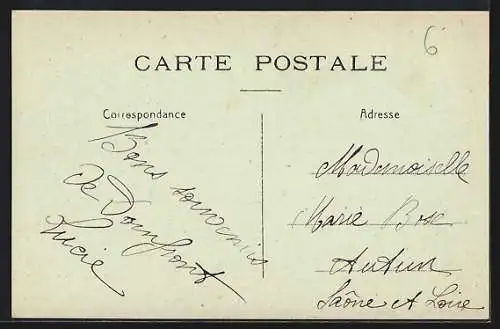 6
CARTE POSTALE
Correspondance
Bons souvenirs
de Domfront
Lucie
Adresse
Mademoiselle
Marie Bose
Autun
Saône et Loire